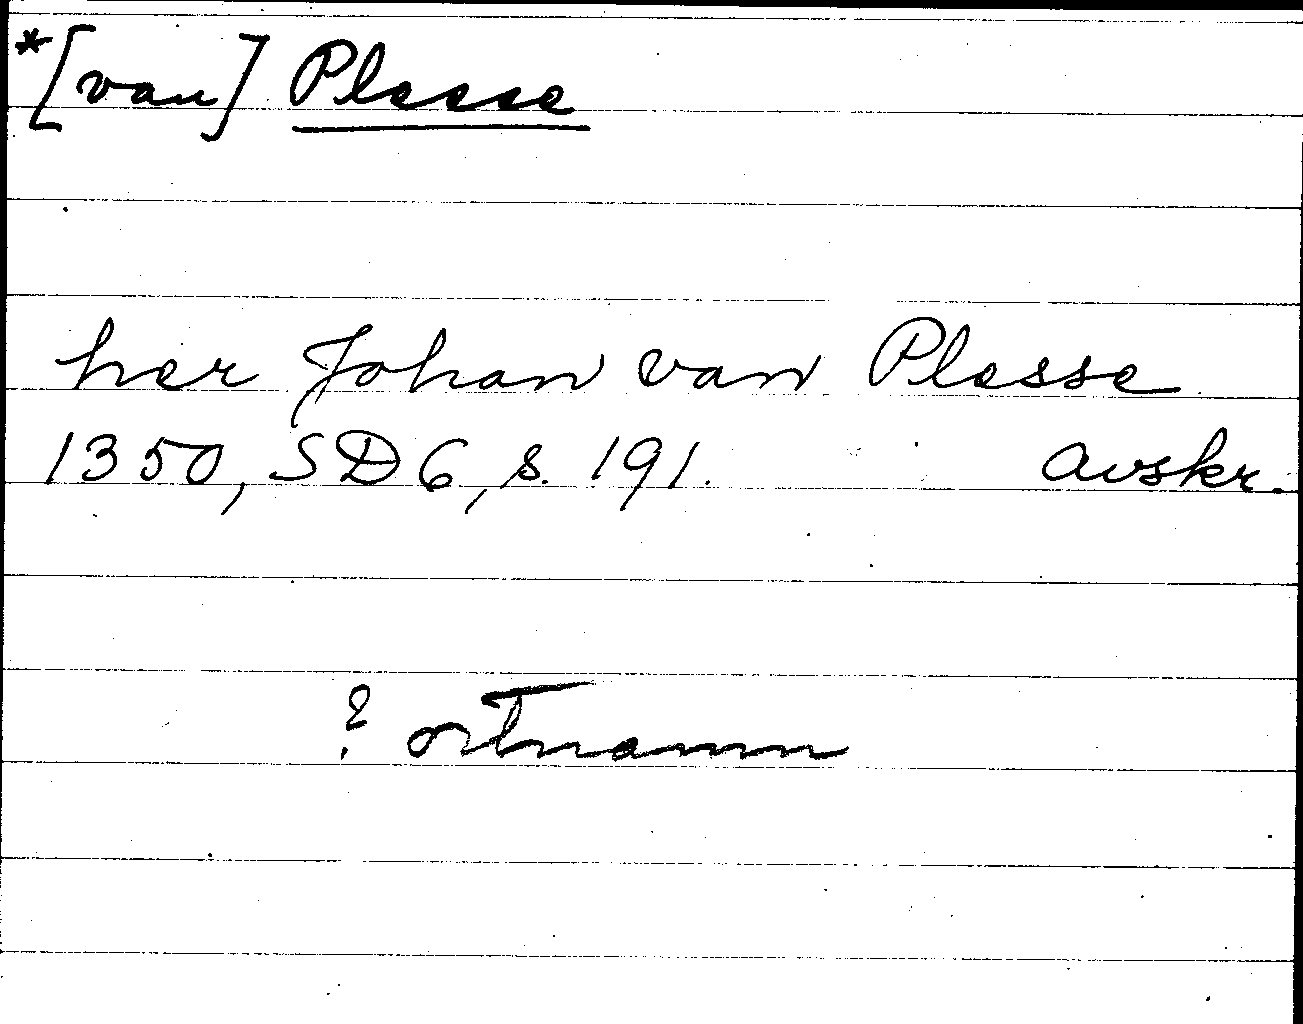 *[van] Plesse
her Johan van Plesse
1350, SD 6, s. 191. avskr.
? ortnamn